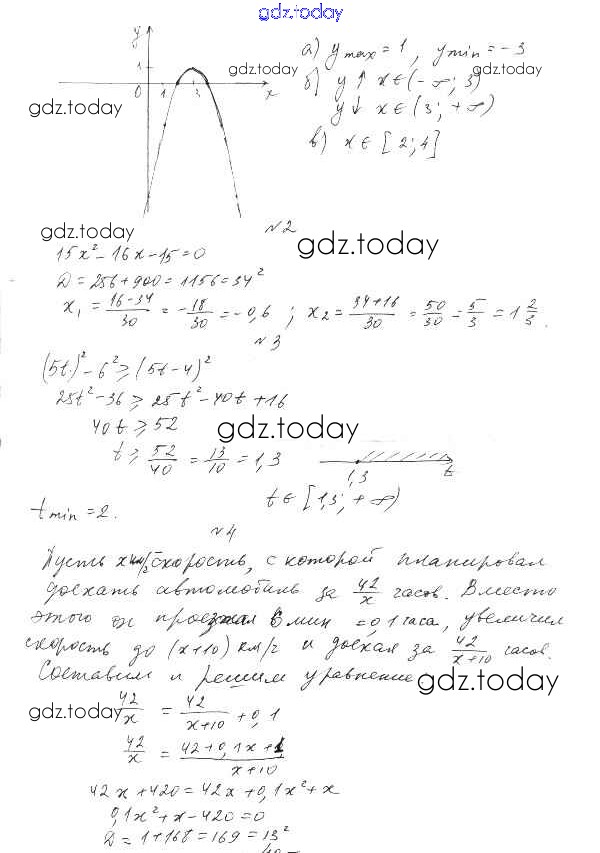 gdz.today
y
1
0 1 3 x
а) y max = 1 , y min = -3
gdz.today
gdz.today
б) y ↑ x ∈ (-∞; 3)
gdz.today
y ↓ x ∈ (3; +∞)
в) x ∈ [2; 4]
№2
gdz.today
gdz.today
15x² - 16x - 15 = 0
D = 256 + 900 = 1156 = 34²
x₁ = (16-34)/30 = -18/30 = -0,6 ; x₂ = (34+16)/30 = 50/30 = 5/3 = 1 2/3.
№3
(5t)² - 6² ≥ (5t-4)²
25t² - 36 ≥ 25t² - 40t + 16
40t ≥ 52
gdz.today
t ≥ 52/40 = 13/10 = 1,3
1,3 t
t ∈ [1,3; +∞)
t min = 2.
№4
Пусть x км/ч скорость, с которой планировал
доехать автомобиль за 42/x часов. Вместо
этого он 6 мин = 0,1 часа, увеличил
скорость до (x+10) км/ч и доехал за 42/(x+10) часов.
Составим и решим уравнение.
gdz.today
gdz.today
42/x = 42/(x+10) + 0,1
42/x = (42 + 0,1x + 1)/(x+10)
42x + 420 = 42x + 0,1x² + x
0,1x² + x - 420 = 0
D = 1 + 168 = 169 = 13²